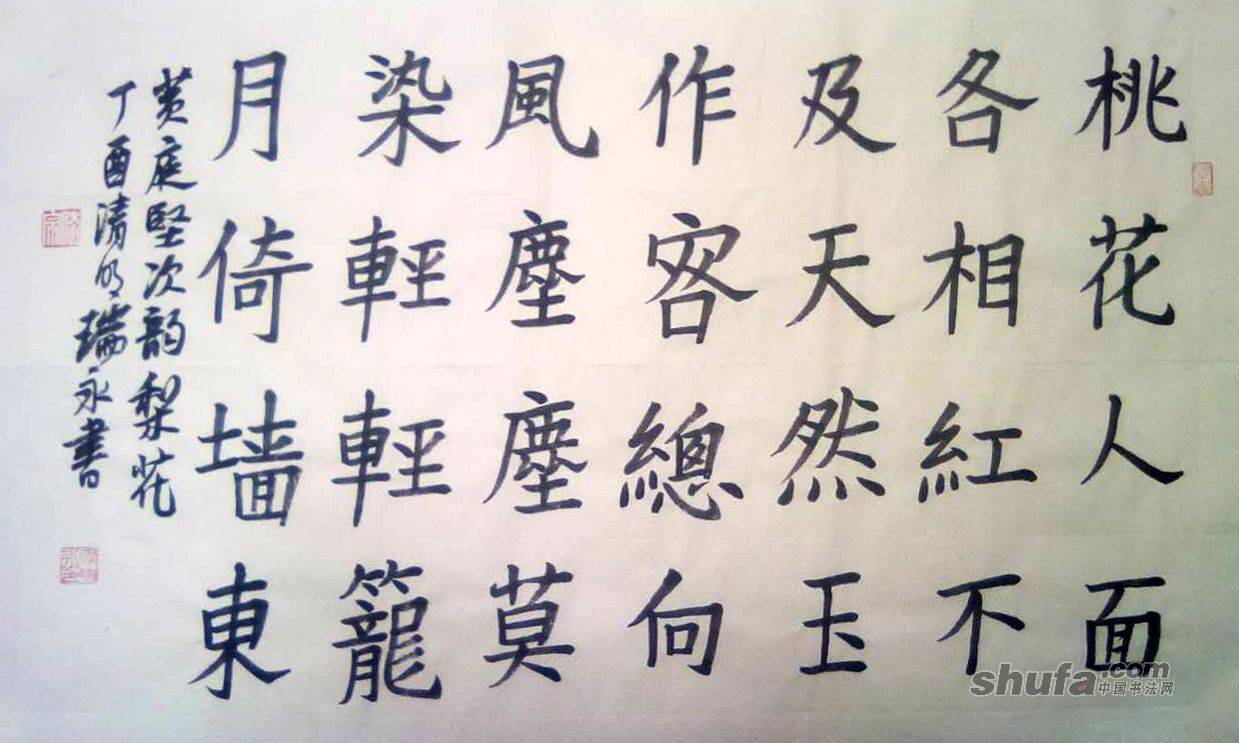 桃花人面
各相紅不
及天然玉
作容總向
風塵塵莫
染輕輕籠
月倚墙東
黄庭堅次韵梨花
丁酉清明瑞永書
shufa.com
中国书法网